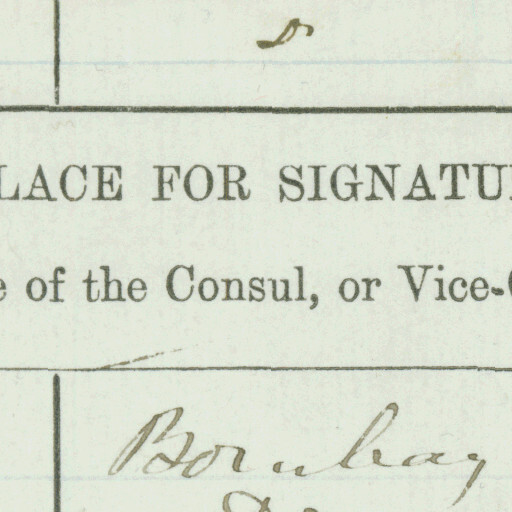 Do
LACE FOR SIGNATU
e of the Consul, or Vice-
Bombay